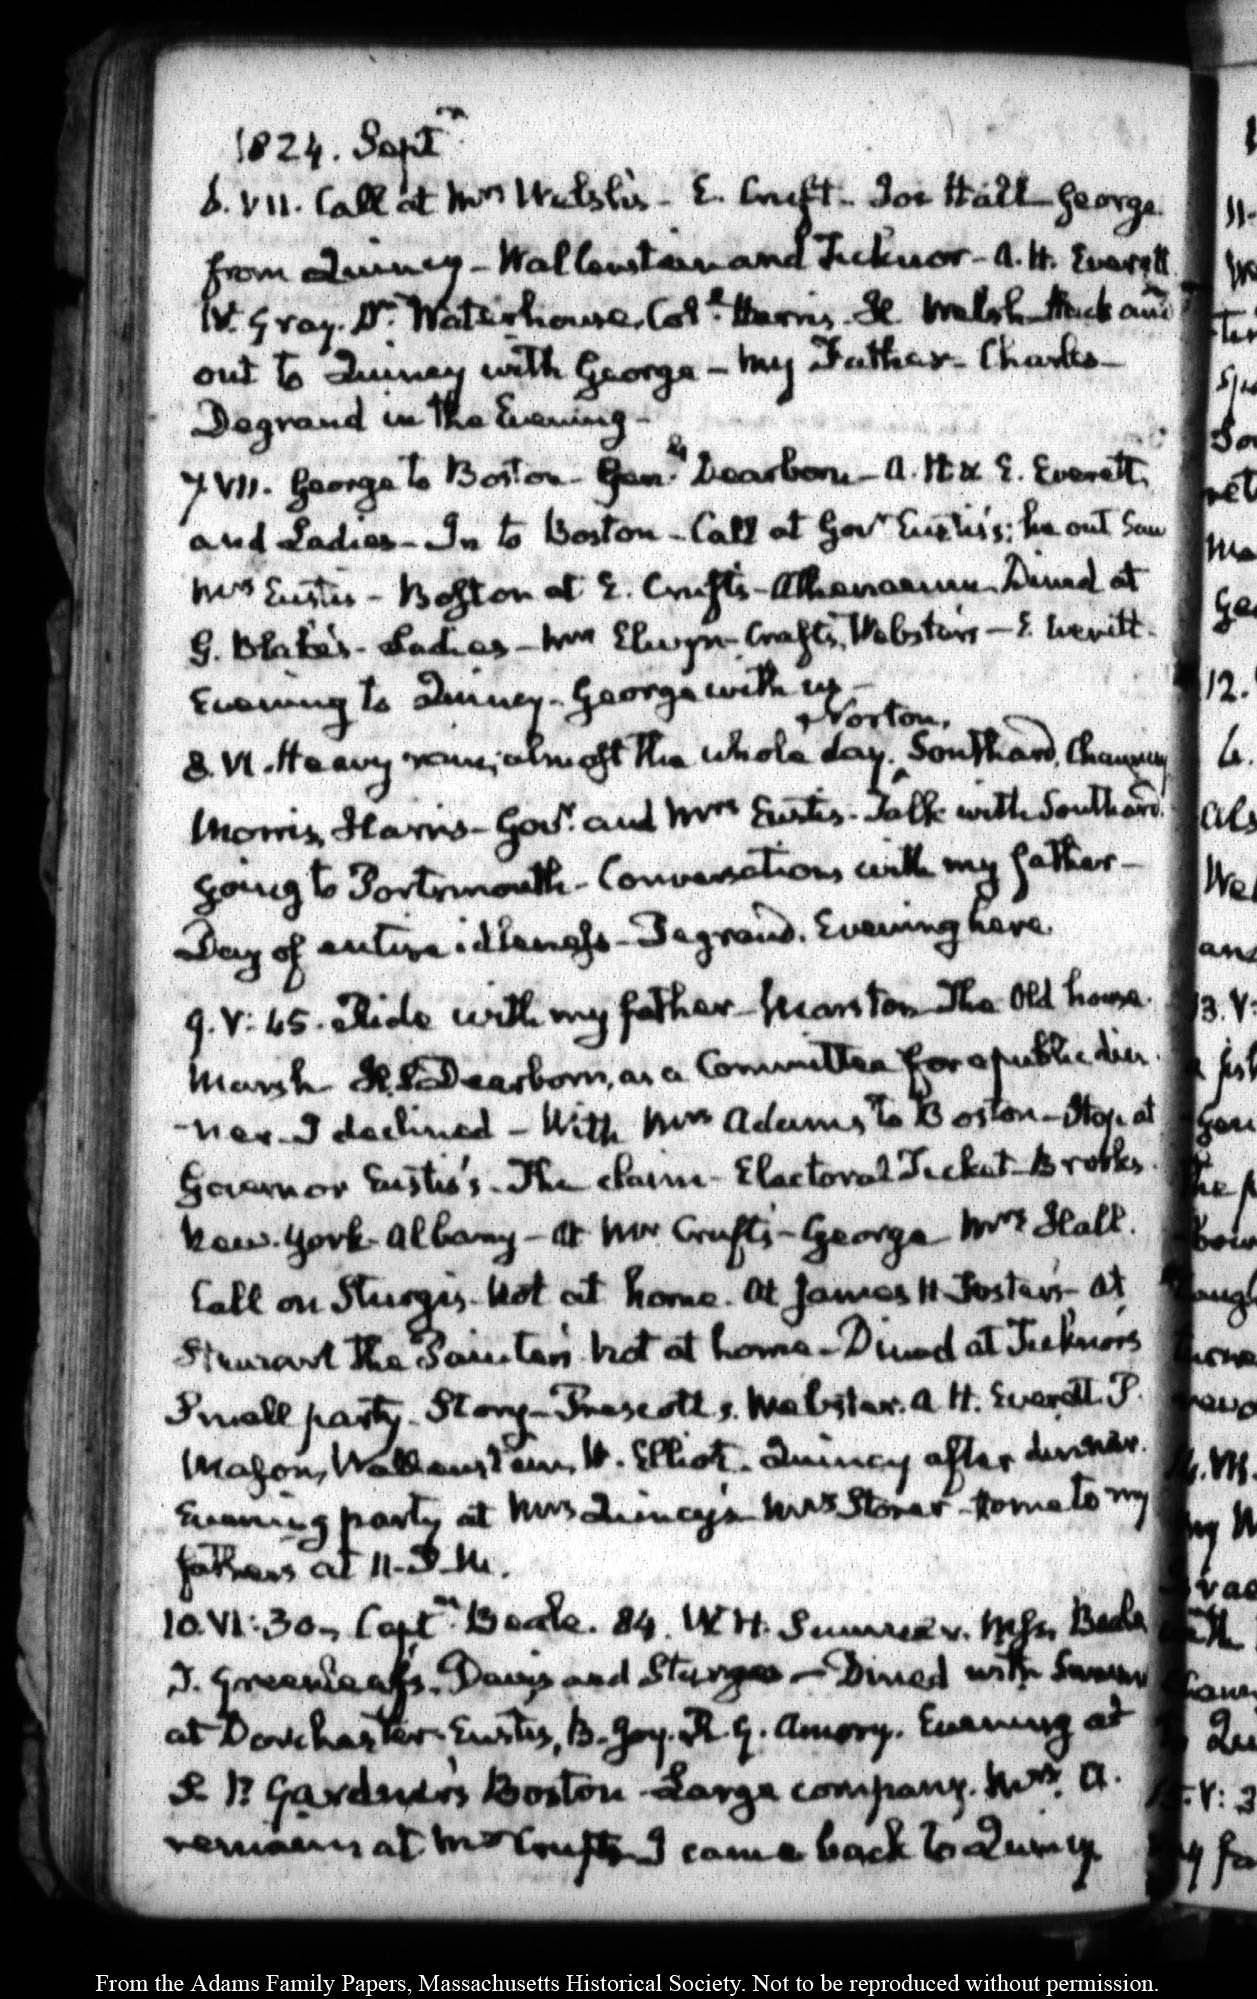 1824. Septr
6. VII. Call at Mrs Welsh's – E. Cruft – Hall George
from Quincy – Wallenstein and Ticknor – A. H. Everett
W. Gray. Dr. Waterhouse, Coll. Harris. Welsh and
out to Quincy with George – My Father – Charles –
Degrand in the Evening –
7. VII. George to Boston – Genl. Dearborn – A. H & E. Everett,
and Ladies – In to Boston – Call at Govr Eustis's; he out Saw
Mrs Eustis – Boston at E. Cruft's – Athenaeum. Dined at
G. Blake's – Ladies – Mrs Elwyn – Crafts, Webster's – E. Everett.
Evening to Quincy – George with us –
+ Norton,
8. VI. Heavy rain, almost the whole day. Southard, Chauncey
Morris, Harris – Govr. and Mrs Eustis – Talk with Southard.
going to Portsmouth – Conversations with my father –
Day of entire idleness – Degrand. Evening here.
9. V: 45. Ride with my father – Marston – The Old house.
Marsh – Dearborn, as a Committee for a public din
-ner – I declined – With Mrs Adams to Boston – Stop at
Governor Eustis's – The claim – Electoral Ticket – Brooks.
New-York – Albany – At Mr Cruft's – George Mrs Hall.
Call on Sturgis – Not at home. At James H Foster's – At
Stewart the Painter's not at home – Dined at Ticknor's
Small party – Story – Prescott, Webster. A. H. Everett. P.
Mason, Wallenstein, Elliot. Quincy after dinner.
Evening party at Mrs Quincy's – Mrs Storer – Home to my
fathers at 11. P.M.
10. VI: 30. Captn. Beale. 84. W. H. Sumner. Beale
Greenleaf's. Davis and Sturges – Dined with Sumner
at Dorchester – Eustis, B. Joy. Amory. Evening at
S. P. Gardner's Boston – Large company. Mrs. A.
remains at Mr Cruft's – I came back to Quincy
From the Adams Family Papers, Massachusetts Historical Society. Not to be reproduced without permission.